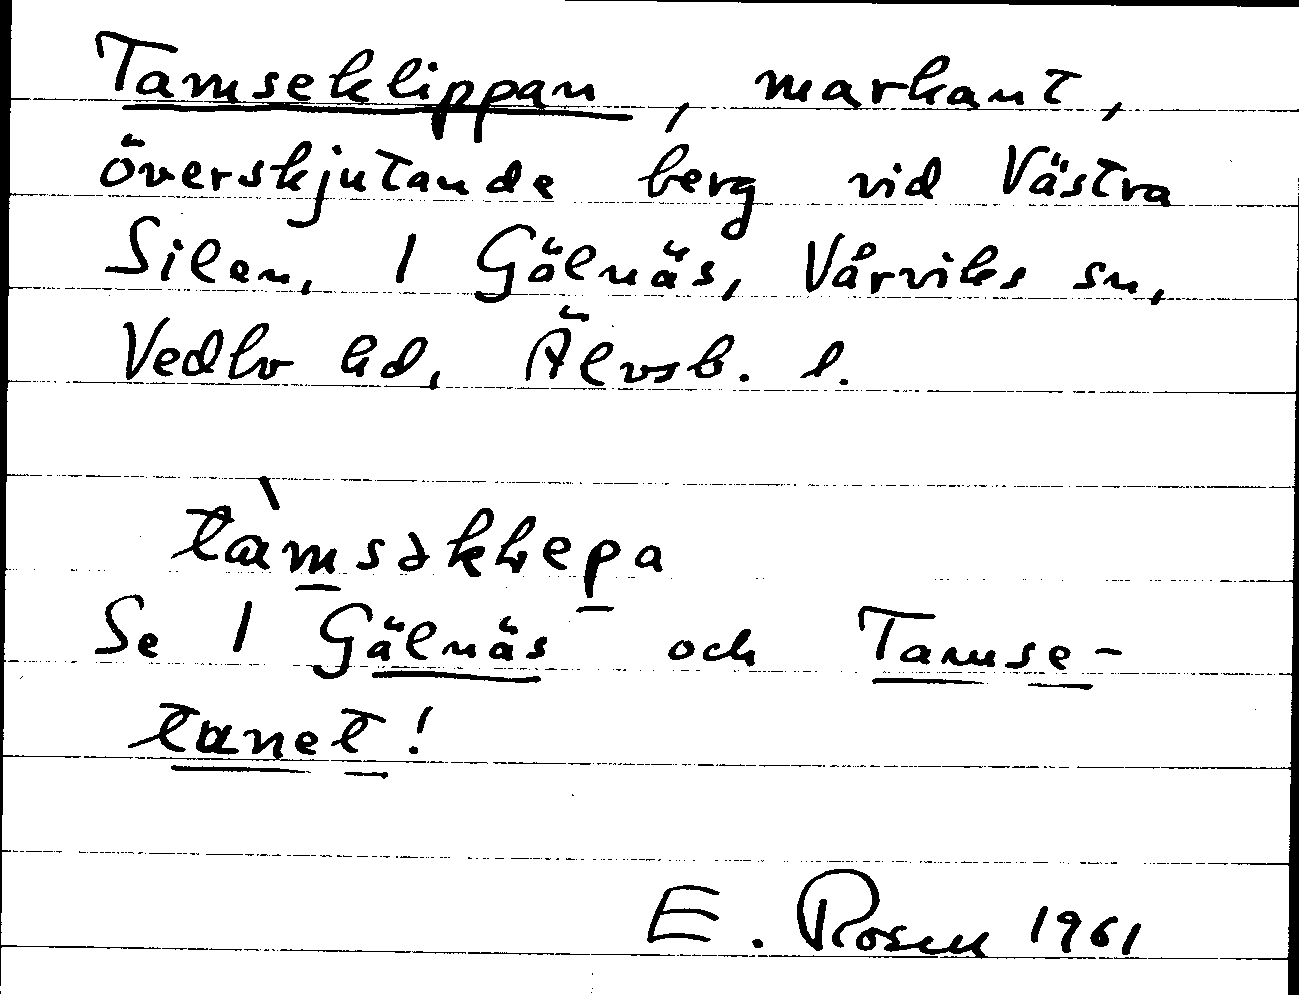 Tamseklippan, markant,
överskjutande berg vid Västra
Silen, 1 Gälnäs, Vårviks sn,
Vedbo hd, Älvsb. l.
tàmsəklepa
Se 1 Gälnäs och Tamse-
tanet!
E. Rosen 1961